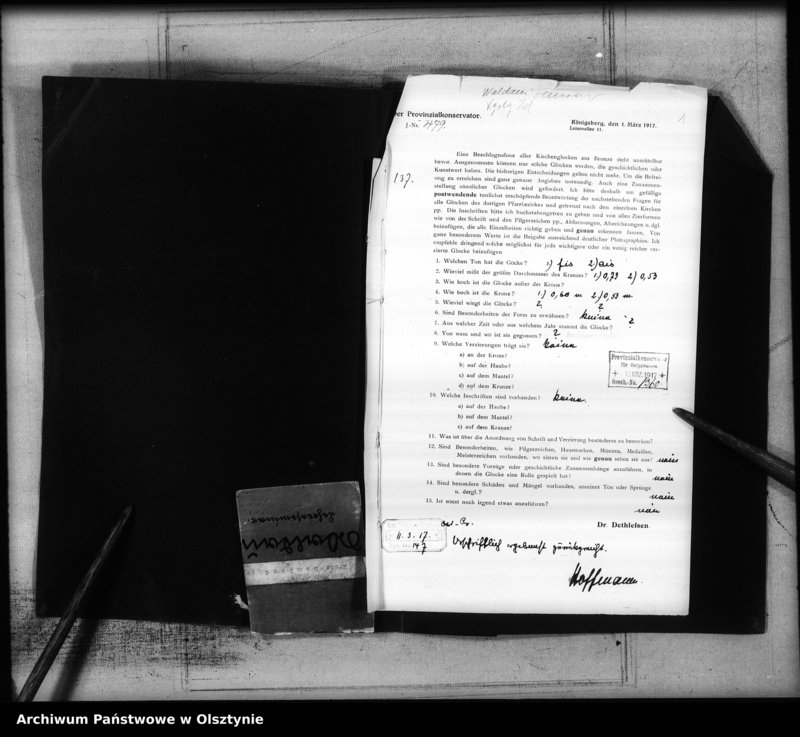 Waldau
Der Provinzialkonservator.
J.-Nr. 479.
Königsberg, den 1. März 1917.
1
137.
Eine Beschlagnahme aller Kirchenglocken aus Bronze steht unmittelbar
bevor. Ausgenommen können nur solche Glocken werden, die geschichtlichen oder
Kunstwert haben. Die bisherigen Entscheidungen gelten nicht mehr. Um die Befrei-
ung zu erreichen sind ganz genaue Angaben notwendig. Auch eine Zusammen-
stellung sämtlicher Glocken wird gefordert. Ich bitte deshalb um gefällige
postwendende tunlichst erschöpfende Beantwortung der nachstehenden Fragen für
alle Glocken des dortigen Pfarrbezirkes und getrennt nach den einzelnen Kirchen
pp. Die Inschriften bitte ich buchstabengetreu zu geben und von allen Zierformen
wie von der Schrift und den Pilgerzeichen pp., Abformungen, Abzeichnungen u. dgl.
beizufügen, die alle Einzelheiten richtig geben und genau erkennen lassen. Von
ganz besonderem Werte ist die Beigabe ausreichend deutlicher Photographien. Ich
empfehle dringend solche möglichst für jede wichtigere oder ein wenig reicher ver-
zierte Glocke beizufügen
1. Welchen Ton hat die Glocke? 1) fis 2) ais
2. Wieviel mißt der größte Durchmesser des Kranzes? 1) 0,73 2) 0,53
3. Wie hoch ist die Glocke außer der Krone?
4. Wie hoch ist die Krone? 1) 0,60 m 2) 0,53 m
5. Wieviel wiegt die Glocke? ? ?
6. Sind Besonderheiten der Form zu erwähnen? keine
7. Aus welcher Zeit oder aus welchem Jahr stammt die Glocke? ?
8. Von wem und wo ist sie gegossen? ?
9. Welche Verzierungen trägt sie? keine
a) an der Krone?
b) auf der Haube?
c) auf dem Mantel?
d) auf dem Kranze?
Provinzialkonservator
für Ostpreussen
1917
Gesch.-No. 1360
10. Welche Inschriften sind vorhanden? keine.
a) auf der Haube?
b) auf dem Mantel?
c) auf dem Kranze?
11. Was ist über die Anordnung von Schrift und Verzierung besonderes zu bemerken?
12. Sind Besonderheiten, wie Pilgerzeichen, Hausmarken, Münzen, Medaillen,
Meisterzeichen vorhanden, wo sitzen sie und wie genau sehen sie aus? nein
13. Sind besondere Vorzüge oder geschichtliche Zusammenhänge anzuführen, in
denen die Glocke eine Rolle gespielt hat? nein
14. Sind besondere Schäden und Mängel vorhanden, unreiner Ton oder Sprünge
u. dergl.? nein
15. Ist sonst noch irgend etwas anzuführen? nein
Dr. Dethlefsen
11. 3. 17.
147
Urschriftlich ergebenst zurückgereicht.
Hoffmann.
Waldau
Lehrerseminar.
Archiwum Państwowe w Olsztynie